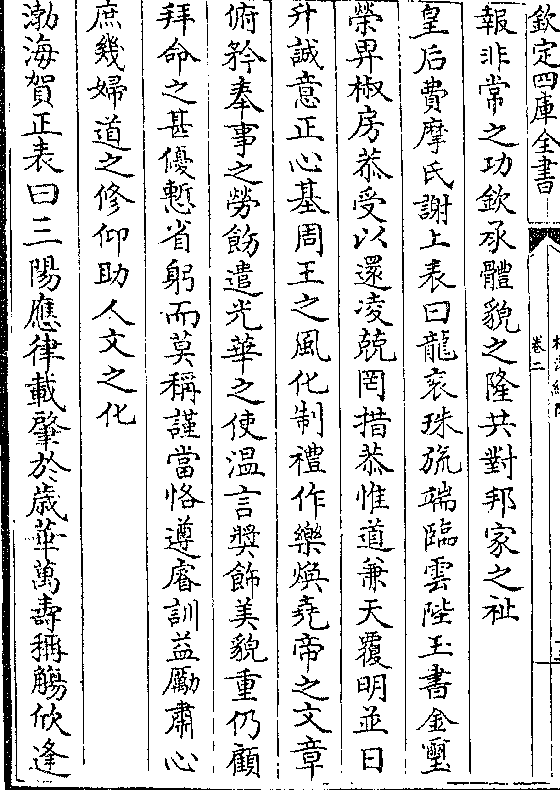 欽定四庫全書
卷二
報非常之功欽承體貌之隆共對邦家之祉
皇后費摩氏謝上表曰龍衮珠旒端臨雲陛玉書金璽
榮畀椒房恭受以還凌兢罔措恭惟道兼天覆明並日
升誠意正心基周王之風化制禮作樂煥堯帝之文章
俯矜奉事之勞飭遣光華之使温言奬飾美貌重仍顧
拜命之甚優慙省躬而莫稱謹當恪遵睿訓益勵肅心
庶幾婦道之修仰助人文之化
渤海賀正表曰三陽應律載肇於歳華萬壽稱觴欣逢